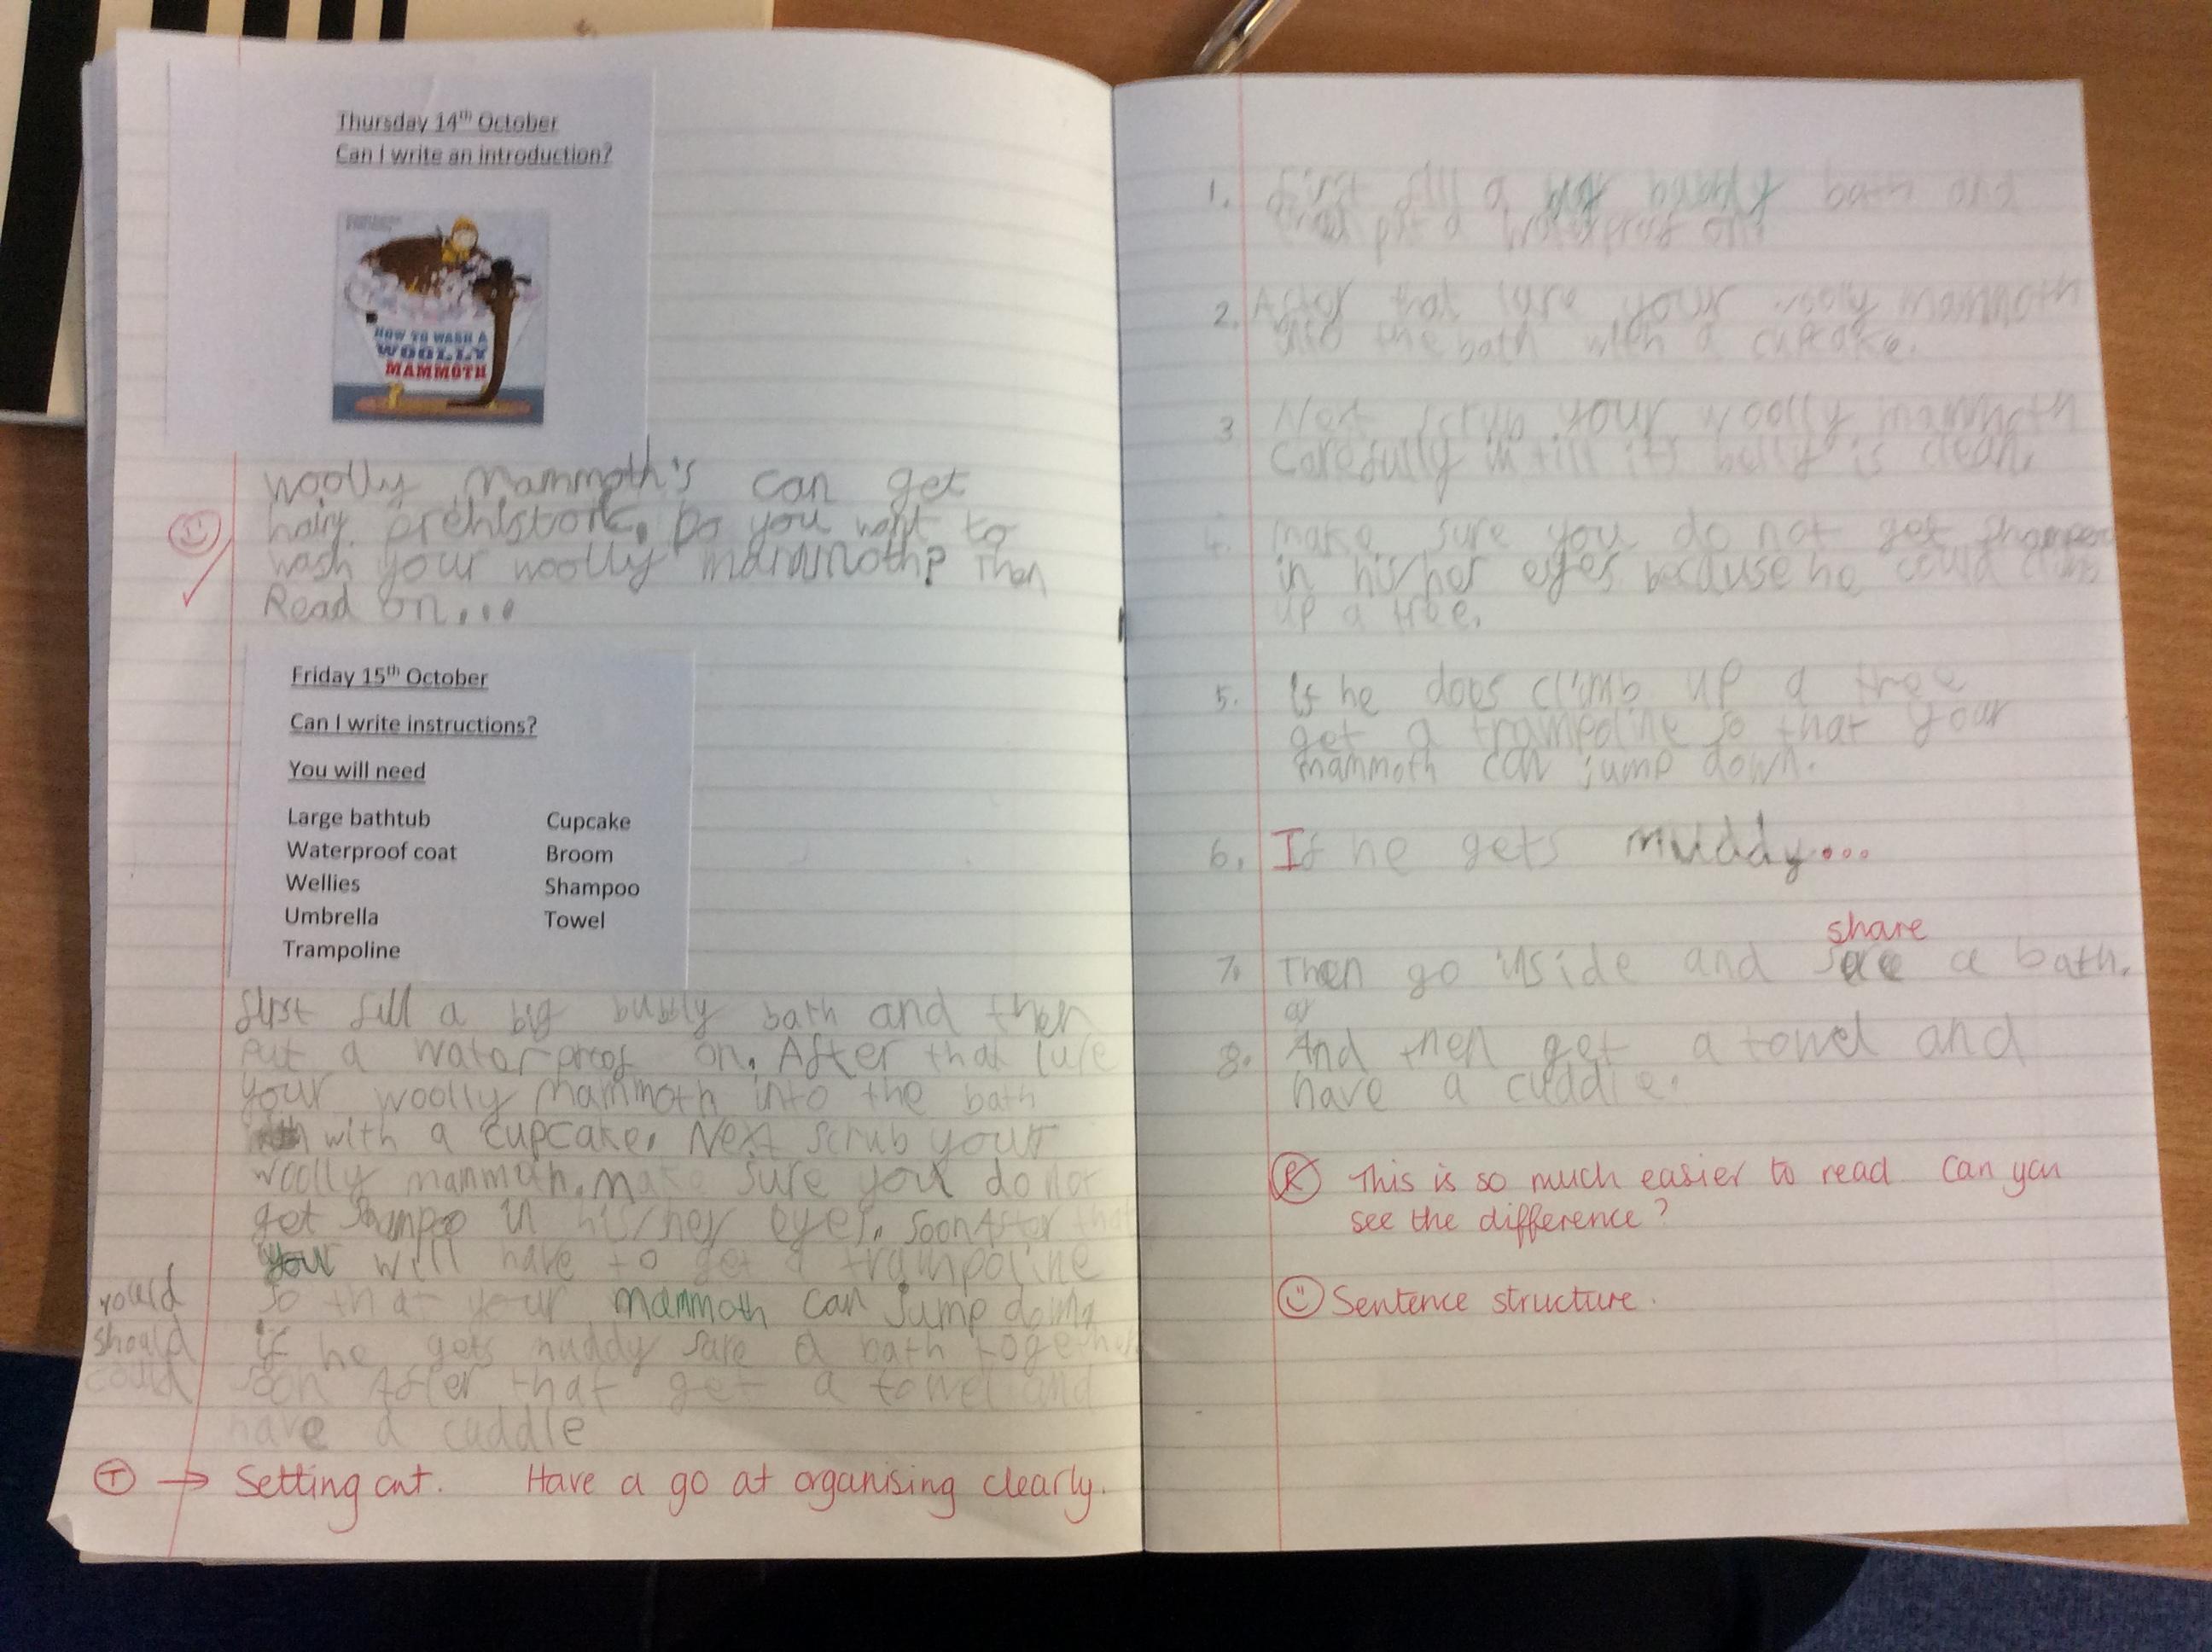 Thursday 14th October
Can I write an introduction?
HOW TO WASH A
WOOLLY
MAMMOTH
Woolly Mammoth's can get
hairy prehistoric. Do you want to
wash your woolly mammoth? Then
Read on...
Friday 15th October
Can I write instructions?
You will need
Large bathtub Cupcake
Waterproof coat Broom
Wellies Shampoo
Umbrella Towel
Trampoline
first fill a big bubbly bath and then
put a waterproof on. After that lure
your woolly mammoth into the bath
with a cupcake. Next scrub your
woolly mammoth. Make sure you do not
get shampo in his/her eyes. Soon After that
your will have to get a trampoline
so that your mammoth can jump down
if he gets muddy sare a bath together
soon After that get a towel and
have a cuddle
would
should
could
T → Setting out. Have a go at organising clearly.
1. first fill a big bubbly bath and
put a waterproof on.
2. After that lure your woolly mammoth
into the bath with a cupcake.
3 Next scrub your woolly mammoth
carefully in till it's belly is clean.
4. make sure you do not get
in his/her eyes because he could climb
up a tree.
5. If he does climb up a tree
get a trampoline so that your
mammoth can jump down.
6. If he gets muddy...
share
7. Then go inside and sare a bath.
8. And then get a towel and
have a cuddle.
R This is so much easier to read. Can you
see the difference?
Sentence structure.